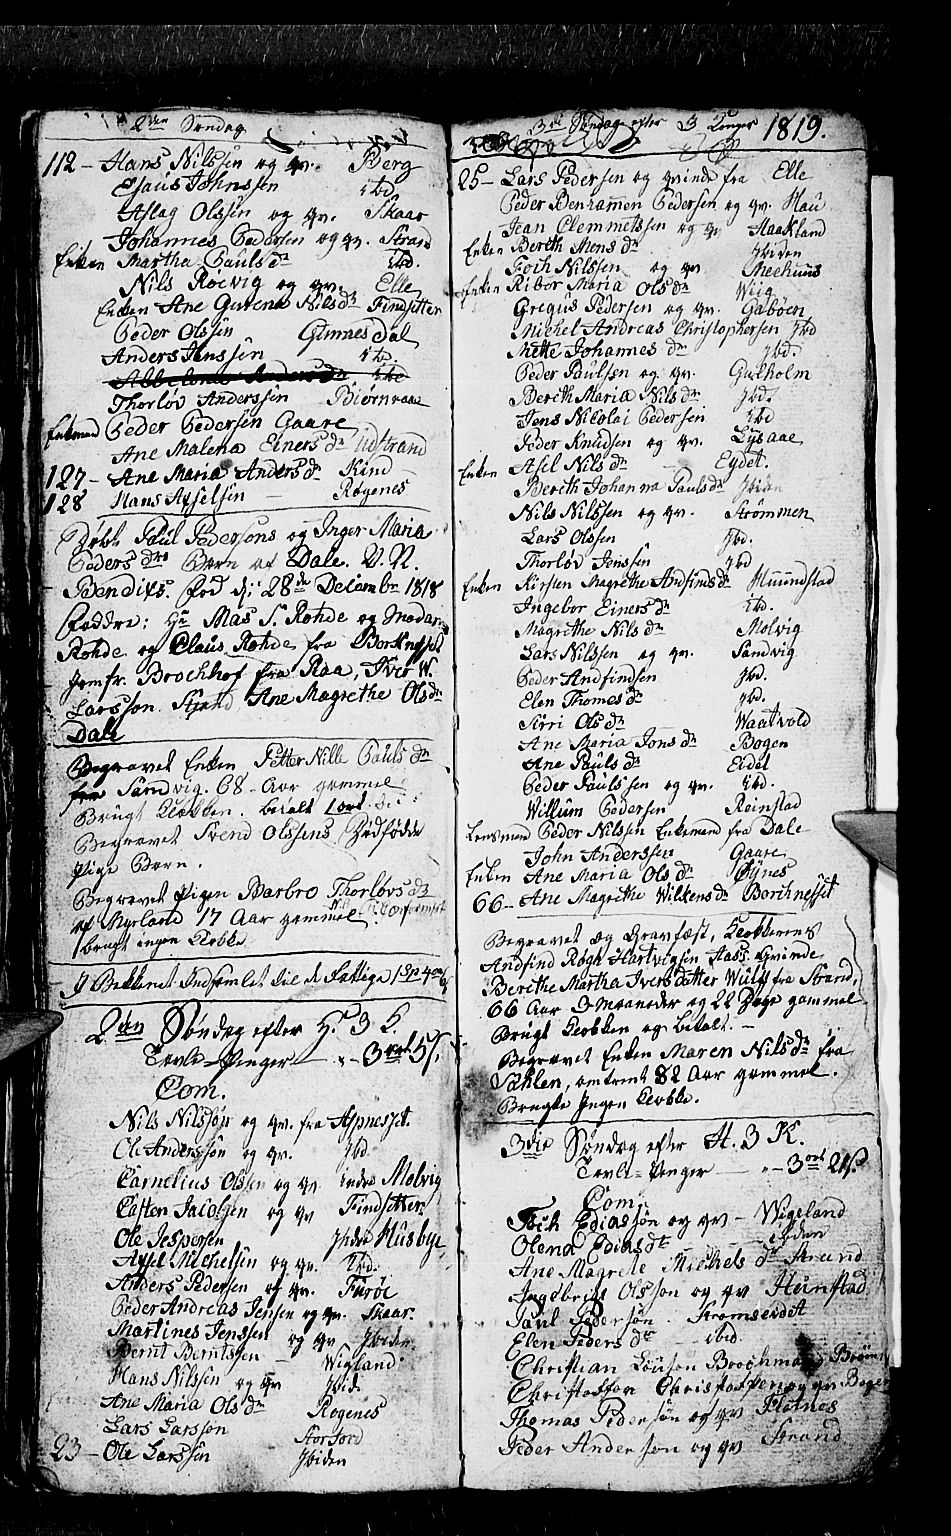 2den Søndag
112 - Hans Nilssen og qv. Berg
Esaus Johnssen ibd.
Aslag Olssen og qv. Skaar
Johannes Pedersen og qv. Strand
Enken Martha Pauls dr ibd.
Nils Røevig og qv. Elle
Enken Ane Gurena Nils dr Findsetter
Peder Olssen Gunnesdal
Anders Jenssen ibd.
Abbelone Anders dr ibd
Thorløv Anderssen Biørnraae
Enkemd Peder Pedersen Gaare
Ane Malena Einers dr Udstrand
127 - Ane Maria Anders dr Kind
128 Hans Axselsen - Røgenes
Døbt Paul Pedersons og Inger Maria
Peders dtrs Barn af Dale. V. N.
Bendix. Fød d: 28de Decembr 1818
Faddre: Hr Mas S. Rohde og Madam
Rohde og Claus Rohde fra Borknesset
Jomfr. Brochhof fra Raa, Iver W.
Larsson Strand Ane Magrethe Ols dr
Dale
Begravet Enken Petter Nille Pauls dr
fra Sandvig. 68 Aar gammel
Brugt Klokken. betalt 1 ort
Begravet Svend Olssens Dødfødde
Pige Barn.
Begravet Pigen Barbro Thorløvs dr
af Myrland 17 Aar gammel
brugt ingen Klokke
I Bekkenet Indsamlet til de Fattige 1 Sp 4
2den Søndag efter H. 3 K.
Tavle-Penger - „ - 3 ort 5 s.
Com.
Nils Nilssøn og qv. fra Aspnesset.
Ole Anderssøn og qv. Ibd.
Cornelius Olssen og qv indre Molvig
Casten Jacobsen og qv Findsetter
Ole Jespersen Indre Husbye
Axsel Michelsen og qv. Ibd.
Anders Pedersen og qv. Furøe
Peder Andreas Jensen og qv. Skaar.
Martines Jenssen og qv Ibiden
Bernt Berntssen - Wigland
Hans Nilssen og qv Ibid.
Ane Maria Ols dr Røgenes
Lars Larssøn Storford
23 - Ole Larssen Ibiden
3die Søndag efter 3 Konger 1819.
25 - Lars Pedersen og qvinde fra Elle
Peder Benhamen Pedersen og qv. Hau
Jean Clemmetssen og qv Haakland
Enken Berth Mons dr Ibiden
Toch Nilssen og qv Meehuus
Enken Ribor Maria Ols dr Wiig
Gregus Pedersen og qv. Gabøen
Michel Andreas Christophersen Ibd
Mette Johannes dr Ibd.
Peder Paulsen og qv. Guxholm
Berth Maria Nils dr Ibd.
Jens Nicolai Pedersen ibd
Peder Knudsen og qv. Lysaae
Enken Asil Nils dr - Eydet.
Berith Johanna Pauls dr Ibiden
Nils Nilssen og qv. Strømmen
Lars Olssen Ibd.
Thorløv Jenssen Ibd
Enken Kirsten Magrethe Andfinds dr Muunstad
Ingebor Einers dr ibd.
Magrethe Nils dr Molvig
Lars Nilssen og qv. Sandvig
Peder Andfindsen Ibd.
Elen Thomes dr Ibd.
Siri Ols dr Waatvold
Ane Maria Jons dr Bogen
Ane Pauls dr Eidet
Peder Paulssen og qv. ibd.
Willum Pedersen Reinstad
Lensmand Peder Nilssen Enkemand fra Dale
John Anderssen Gaare
Enken Ane Maria Ols dr Øynes
66 - Ane Magrethe Wilkens dr Borchnesset
Begravet og Gravfæst, Klokkerens
Andfind Røgh Hartvigsen Hass: Qvinde
Berithe Martha Ivers Datter Wulf fra Strand,
66 Aar 3 Maaneder og 22 Dage gammel
Brugt Klokken og betalt. -
Begravet Enken Maren Nils dr fra
omtrent 82 Aar gammel.
Brugte Ingen Klokke.
3die Søndag efter H. 3 K.
Tavle-Penger - „ - 3 ort 21 s
Com.
Toch Ediassøn og qv - Wigeland
Olena Edias dt ibiden
Ane Magrete Michels dt Strand
Ingebrigt Olsson og qv Hunstad
Paul Pedersøn. Stromseidet
Elen Peders dt - ibid
Christian Løuson Brochmand
Christoffer Christoffersen og qv. Bogen
Thomas Pedersøn og qv Fletnes
Peder Andersøn og qv Strand